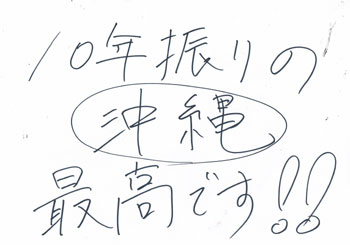 10年振りの
沖縄
最高です!!